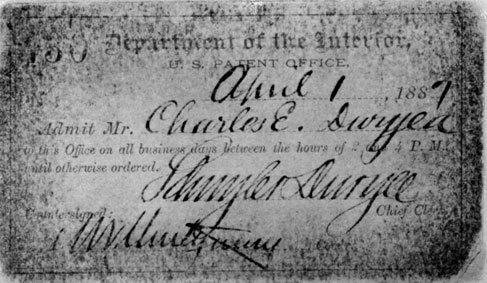 Department of the Interior,
U. S. PATENT OFFICE.
April 1, 1889
Admit Mr. Charles E. Duryea
to this Office on all business days between the hours of 2 and 4 P. M.,
until otherwise ordered.
Schuyler Duryee
Chief Clerk
Countersigned: